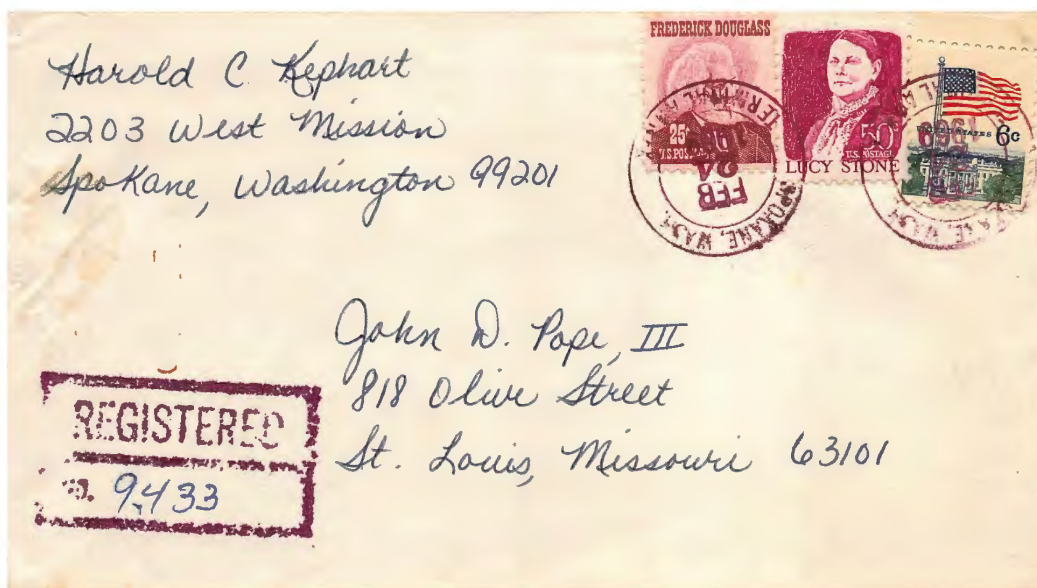 Harold C Kephart
2203 West Mission
Spokane, Washington 99201
FREDERICK DOUGLASS
25¢
U.S. POSTAGE
50¢
U.S. POSTAGE
LUCY STONE
UNITED STATES 6c
FEB
24
1969
SPOKANE, WASH.
FEB
1969
SPOKANE, WASH.
John D. Pope, III
818 Olive Street
St. Louis, Missouri 63101
REGISTERED
NO. 9433